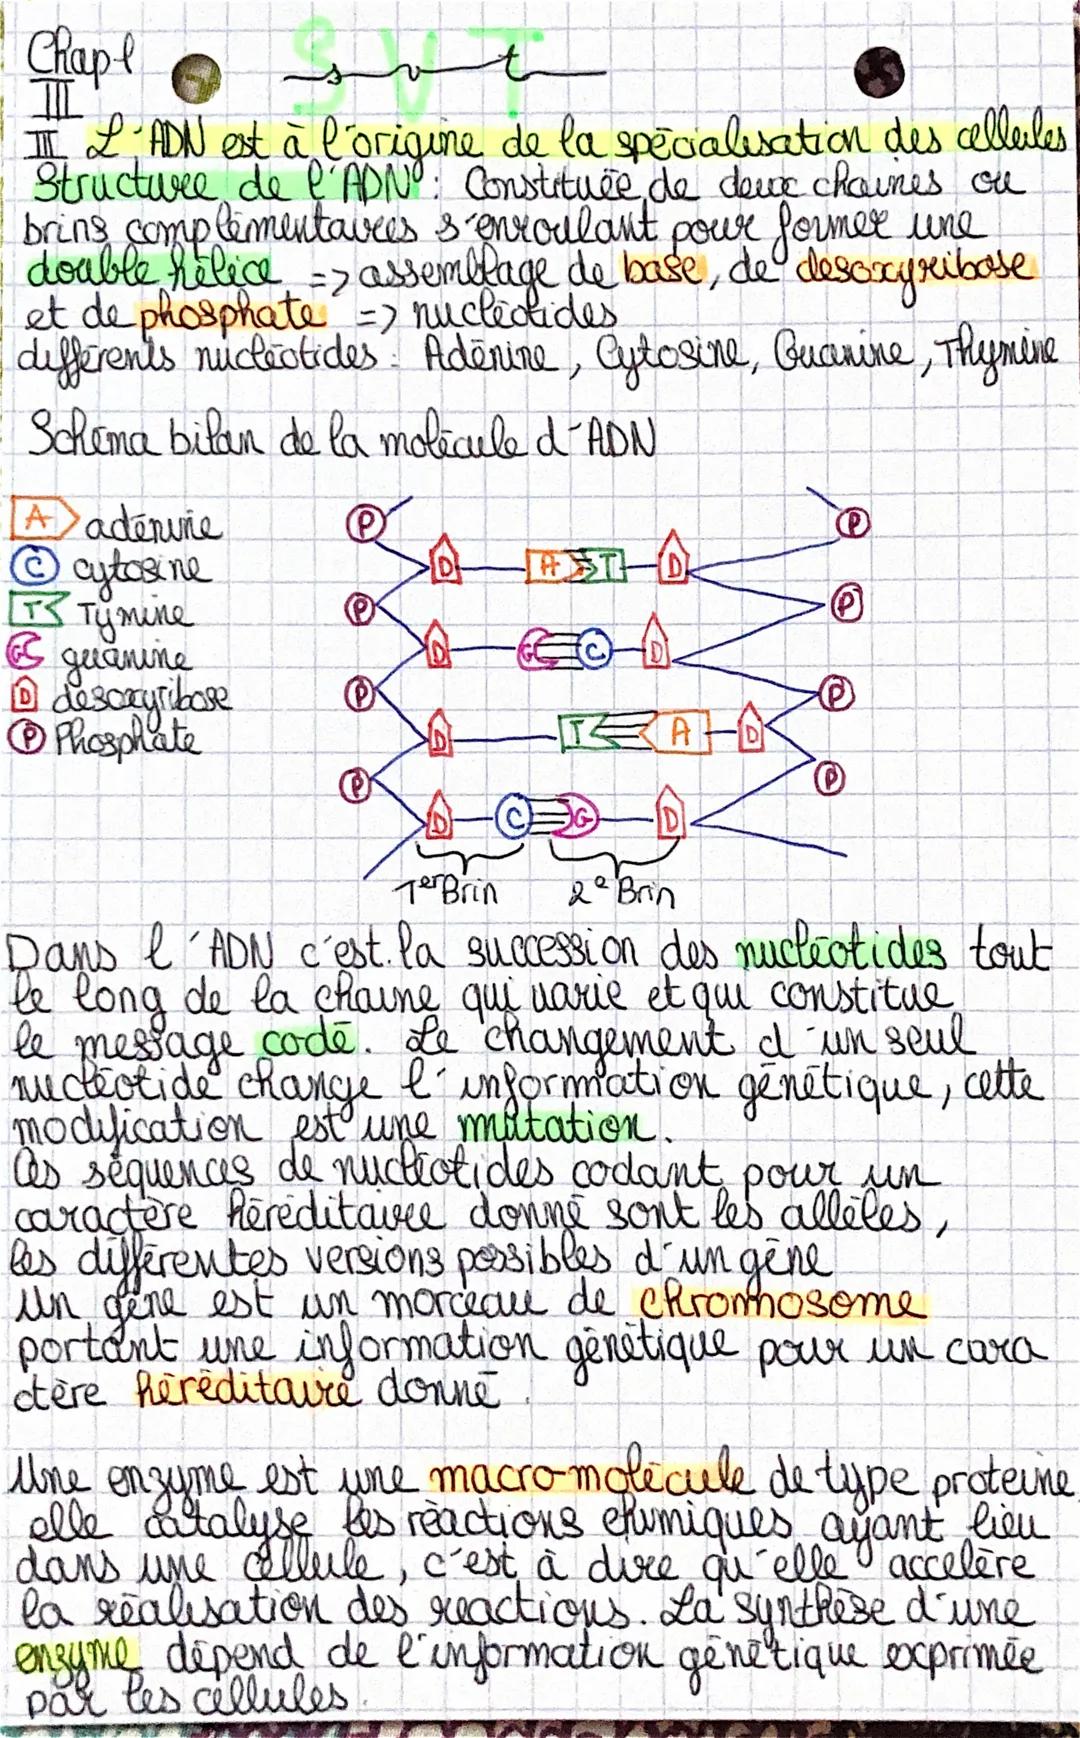 Chap 1
SVT
svt
III
III L'ADN est à l'origine de la spécialisation des cellules
Structure de l'ADN : Constituée de deux chaines ou
brins complémentaires s'enroulant pour former une
double hélice => assemblage de base, de desoxyribose
et de phosphate => nucléotides
différents nucléotides : Adénine, Cytosine, Guanine, Thymine
Schéma bilan de la molécule d'ADN
A adénine
C cytosine
T Tymine
G guanine
D désoxyribose
P Phosphate
P P
D A T D
P P
D G C D
P P
D T A D
P P
D C G D
1er Brin 2e Brin
Dans l'ADN c'est la succession des nucléotides tout
le long de la chaine qui varie et qui constitue
le message codé. Le changement d'un seul
nucléotide change l'information génétique, cette
modification est une mutation.
Ces séquences de nucléotides codant pour un
caractère héréditaire donné sont les allèles,
les différentes versions possibles d'un gène
Un gène est un morceau de chromosome
portant une information génétique pour un cara
ctère héréditaire donné.
Une enzyme est une macro-molécule de type proteine
elle catalyse les réactions chimiques ayant lieu
dans une cellule, c'est à dire qu'elle accelère
la réalisation des reactions. La synthèse d'une
enzyme dépend de l'information génétique exprimée
par les cellules.